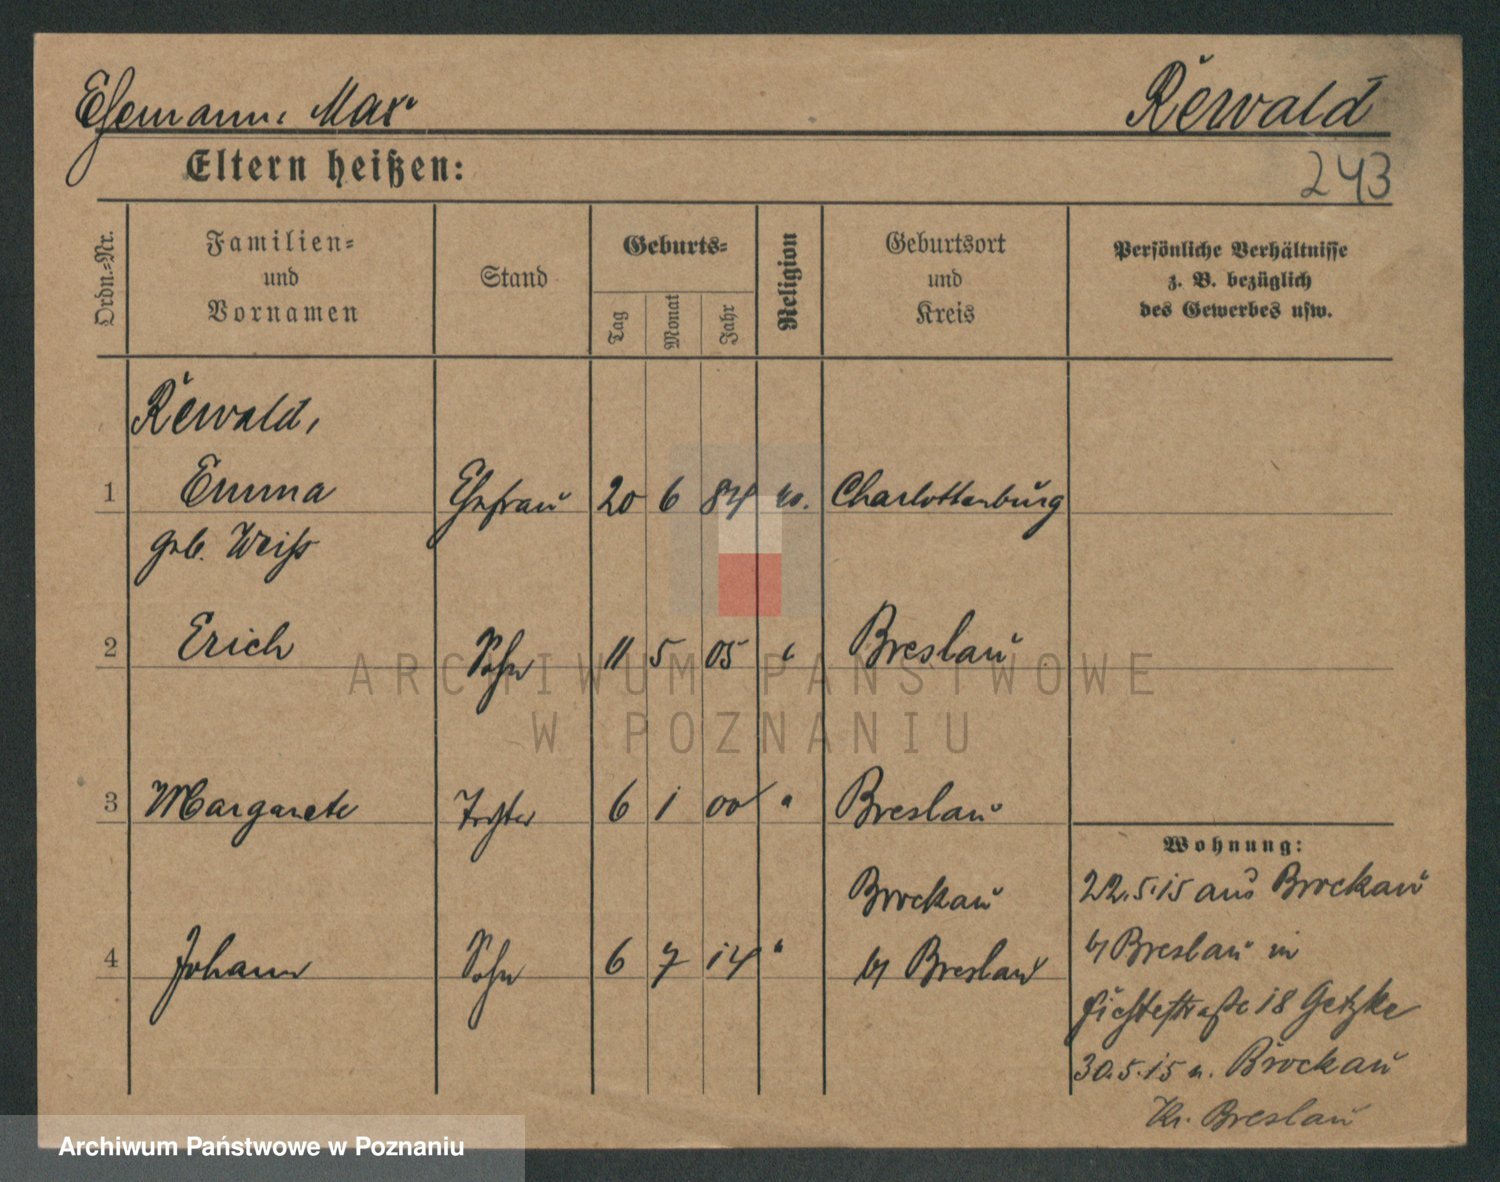 Ehemann: Max Rewald
Eltern heißen:
243
Ordn.=Nr.
Familien=
und
Vornamen
Stand
Geburts=
Tag
Monat
Jahr
Religion
Geburtsort
und
Kreis
Persönliche Verhältnisse
z. B. bezüglich
des Gewerbes usw.
Rewald,
1 Emma Ehefrau 20 6 84 Charlottenburg
geb. Weiß
2 Erich Sohn 11 5 05 " Breslau
3 Margarete Tochter 6 1 00 " Breslau
Wohnung:
Brockau
22.5.15 aus Brockau
4 Johann Sohn 6 7 14 " b/ Breslau
b/ Breslau in
Fichtestraße 18 Getzke
30.5.15 n. Brockau
Kr. Breslau
ARCHIWUM PAŃSTWOWE
W POZNANIU
Archiwum Państwowe w Poznaniu